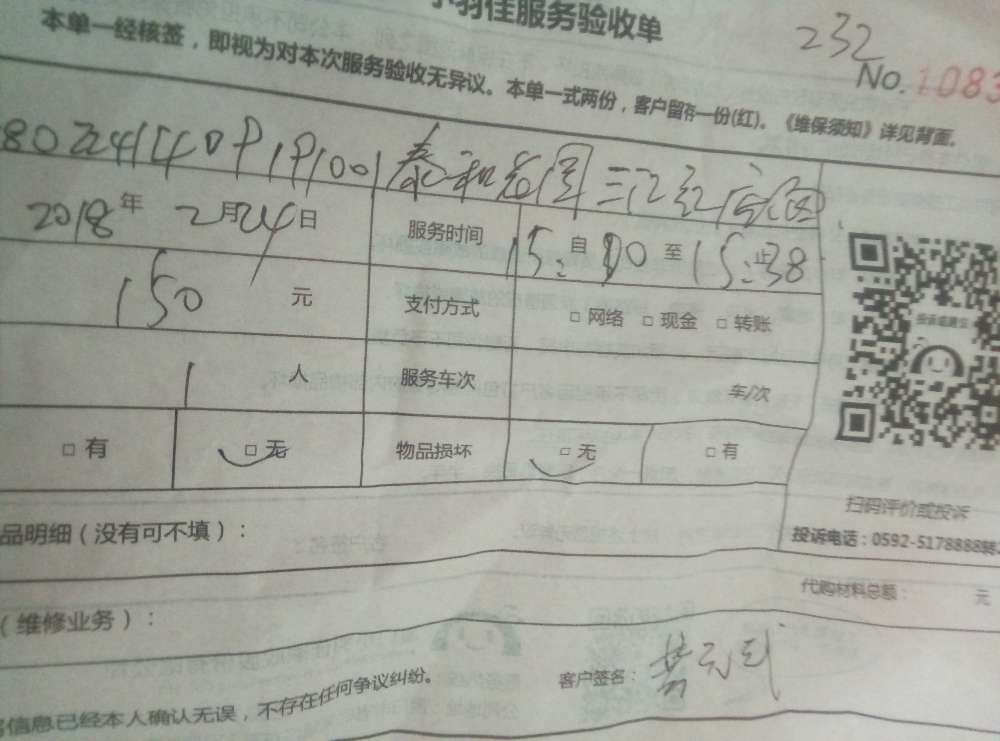 羽佳服务验收单
232
No.1083
本单一经核签，即视为对本次服务验收无异议。本单一式两份，客户留存一份(红)。《维保须知》详见背面。
泰和花园三江红
2018年 2月24日 服务时间 15:自00至15:止38
150 元 支付方式 □网络 □现金 □转账
1 人 服务车次 车/次
□有 □无 物品损坏 □无 □有
投诉或建议
扫码评价或投诉
投诉电话：0592-5178888转
品明细（没有可不填）：
代购材料总额： 元
（维修业务）：
客户签名：
信息已经本人确认无误，不存在任何争议纠纷。